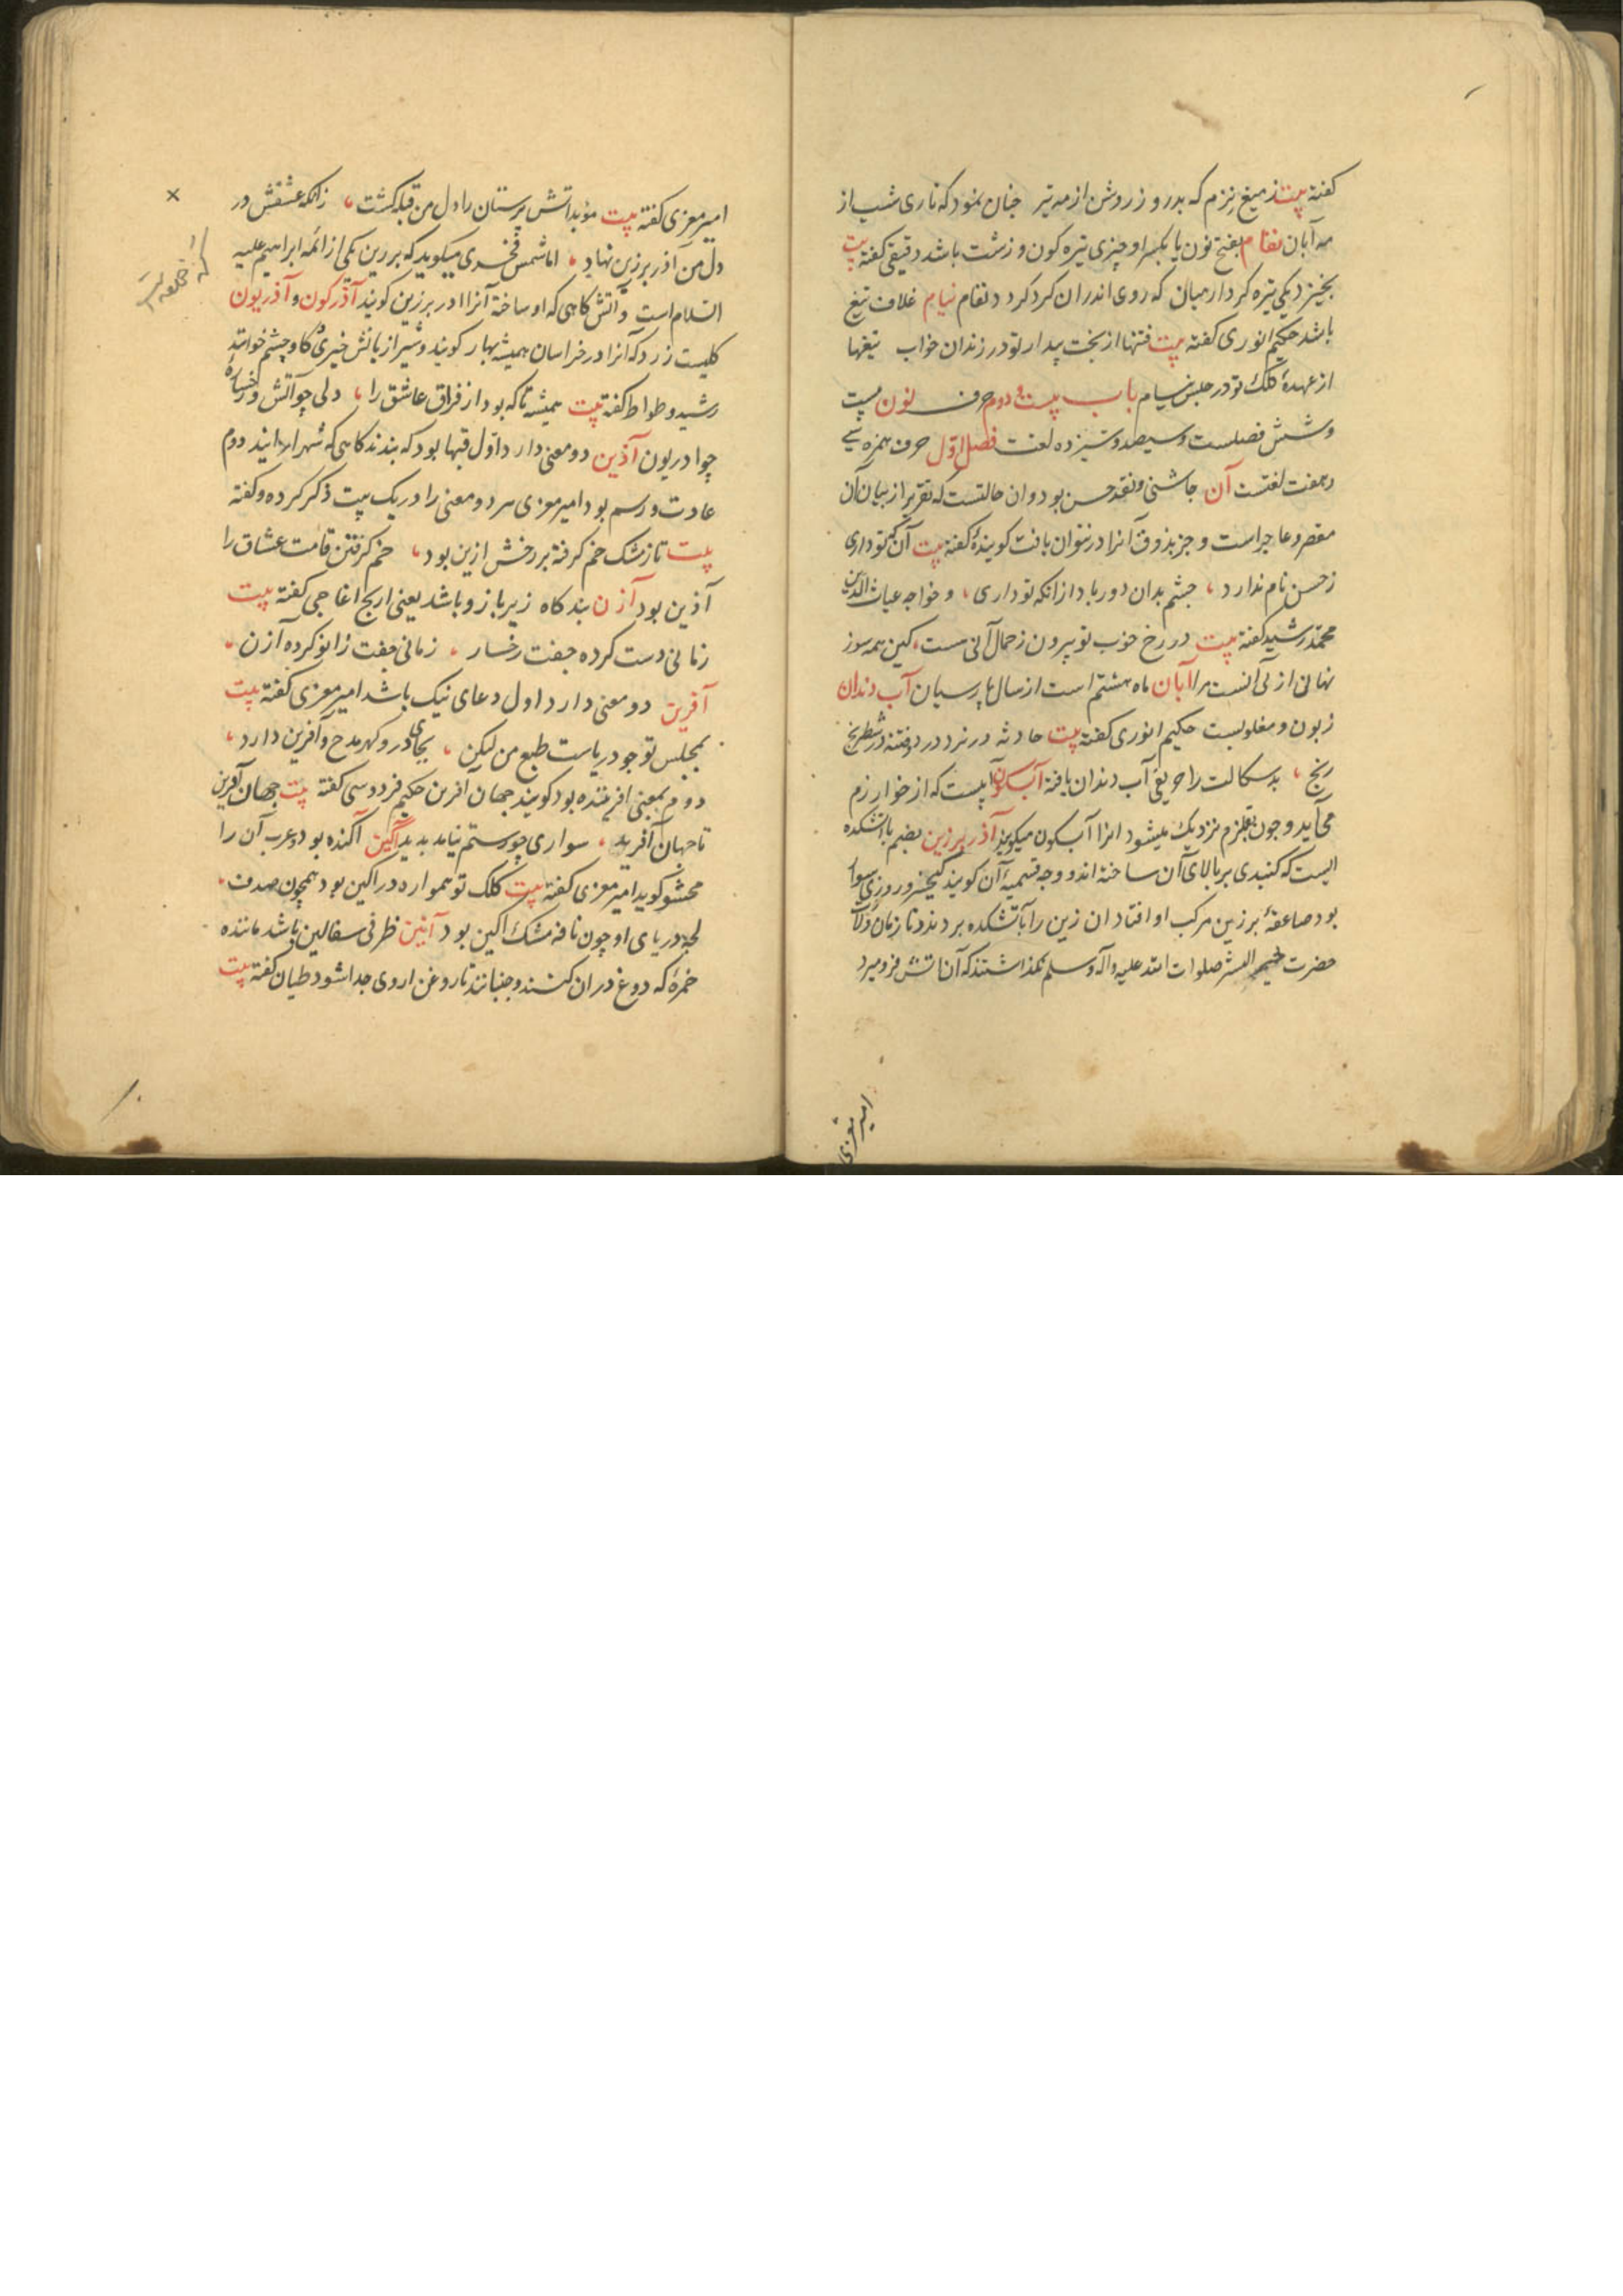 کفته بیت ز میغ نزم که بد روز روشن از مه تیر چنان نمود که تاری شب از
مه آبان نفام بفتح نون یا بکسر او چیزی تیره کون و زشت باشد دقیقی کفته بیت
بخیزد یکی تیره کرد از میان که روی اندران کرد کرد د نفام نیام غلاف تیغ
باشد حکیم انوری کفته بیت فتنها از بخت بیدار تو در زندان خواب تیغها
از عهدهٔ کلک تو در حبس نیام باب بیست و دوم حرف نون بیست
و شش فصلست و سیصد و سیزده لغت فصل اول حرف همزه سی
و هفت لغتست آن چاشنی و نقد حسن بود و ان حالتست که تقریر از بیان آن
مقصر و عاجز است و جز بذوق آنرا در نتوان یافت کویندهٔ کفته بیت آن که تو داری
ز حسن نام ندارد ، چشم بدان دور باد از انکه تو داری ، و خواجه غیاث الدین
محمد رشید کفته بیت در رخ خوب تو بیرون ز جمال آنی هست ، کین همه سوز
نهانی از پی آنست مرا آبان ماه هشتم است از سال پارسیان آب دندان
زبون و مغلوبست حکیم انوری کفته بیت حادثه در نرد درد و فتنه در شطرنج
رنج ، بد سکالت را حریفی آب دندان یافته آبسکون آبیست که از خوارزم
می آید و چون بقلزم نزدیک میشود انرا آبسکون میکویند آذر برزین بضم با آتشکده
ایست که کنبدی بر بالای آن ساخته اند و وجه تسمیهٔ آن کویند کیخسرو روزی سوار
بود صاعقهٔ بر زین مرکب او افتاد ان زین را بآتشکده بردند و تا زمان ولادت
حضرت خیر البشر صلوات الله علیه و آله و سلم نکذاشتند که آن اتش فرو میرد
امیر معزی
امیر معزی کفته بیت موبد اتش پرستان را دل من قبله کشت ، زانکه عشقش در
دل من آذر برزین نهاد ، اما شمس فخری میکوید که برزین یکی از ائمه ابراهیم علیه
السلام است و آتش کاهی که او ساخته آنرا ادر برزین کویند آذرکون و آذریون
کلیست زرد که انرا در خراسان همیشه بهار کویند و شیرازیانش خیری کاو چشم خوانند
رشید وطواط کفته بیت همیشه تا که بود از فراق عاشق را ، دلی چو آتش و رخسارهٔ
چو ادریون آذین دو معنی دارد اول قبها بود که بندند کاهی که شهر ارایند دوم
عادت و رسم بود امیر معزی هر دو معنی را در یک بیت ذکر کرده و کفته
بیت تا ز مشک خم کرفته بر رخش اذین بود ، خم کرفتن قامت عشاق را
آذین بود آزن بند کاه زیر بازو باشد یعنی ارنج اغاجی کفته بیت
زمانی دست کرده جفت رخسار ، زمانی جفت زانو کرده آزن ،
آفرین دو معنی دارد اول دعای نیک باشد امیر معزی کفته بیت
بمجلس تو چو دریاست طبع من لیکن ، بجای در و کهر مدح و آفرین دارد ،
دوم بمعنی افریننده بود کویند جهان آفرین حکیم فردوسی کفته بیت جهان آفرین
تا جهان آفرید ، سواری چو رستم نیامد پدید آکین آکنده بود و عرب آن را
محشو کوید امیر معزی کفته بیت کلک تو همواره در اکین بود همچون صدف ،
لجه دریای او چون نافه مشک اکین بود آنین ظرفی سفالین باشد ماننده
خمرهٔ که دوغ در ان کنند و جنبانند تا روغن ازوی جدا شود طیان کفته بیت